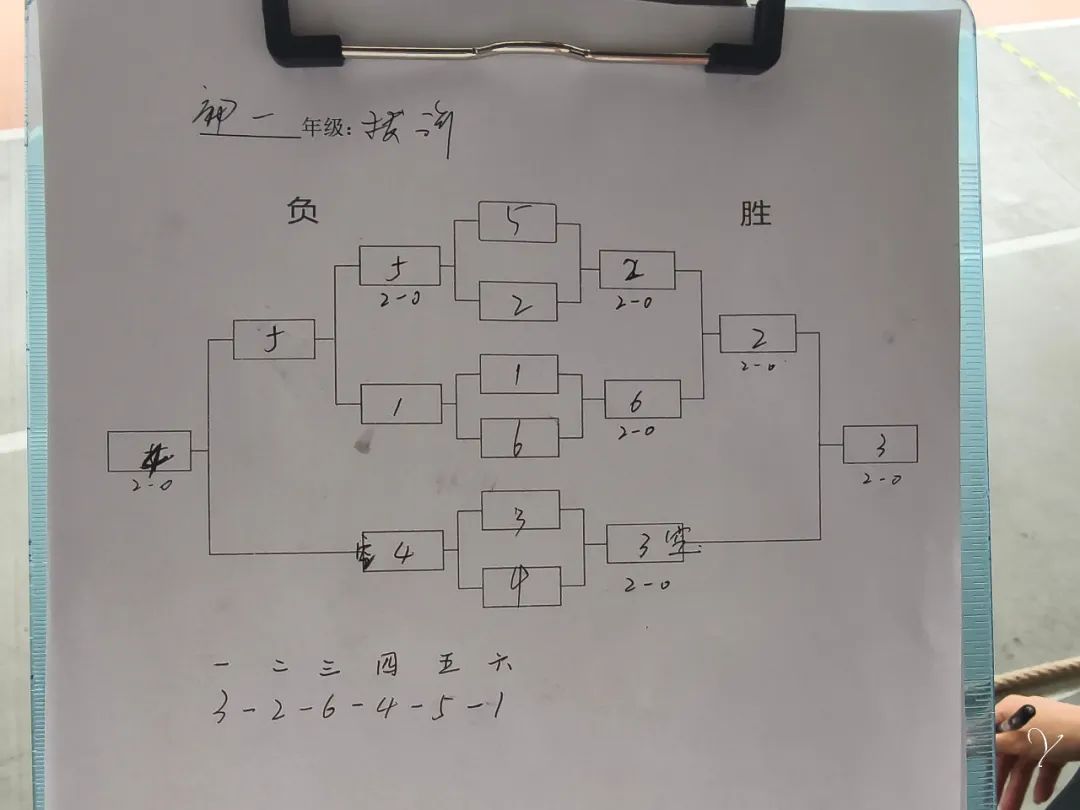 初一年级:拔河
负 胜
5
5 2
2-0 2-0
2
5 2
2-0
1
1 6
2-0
6
4 3
2-0 2-0
3
4 3 空
2-0
4
一 二 三 四 五 六
3-2-6-4-5-1